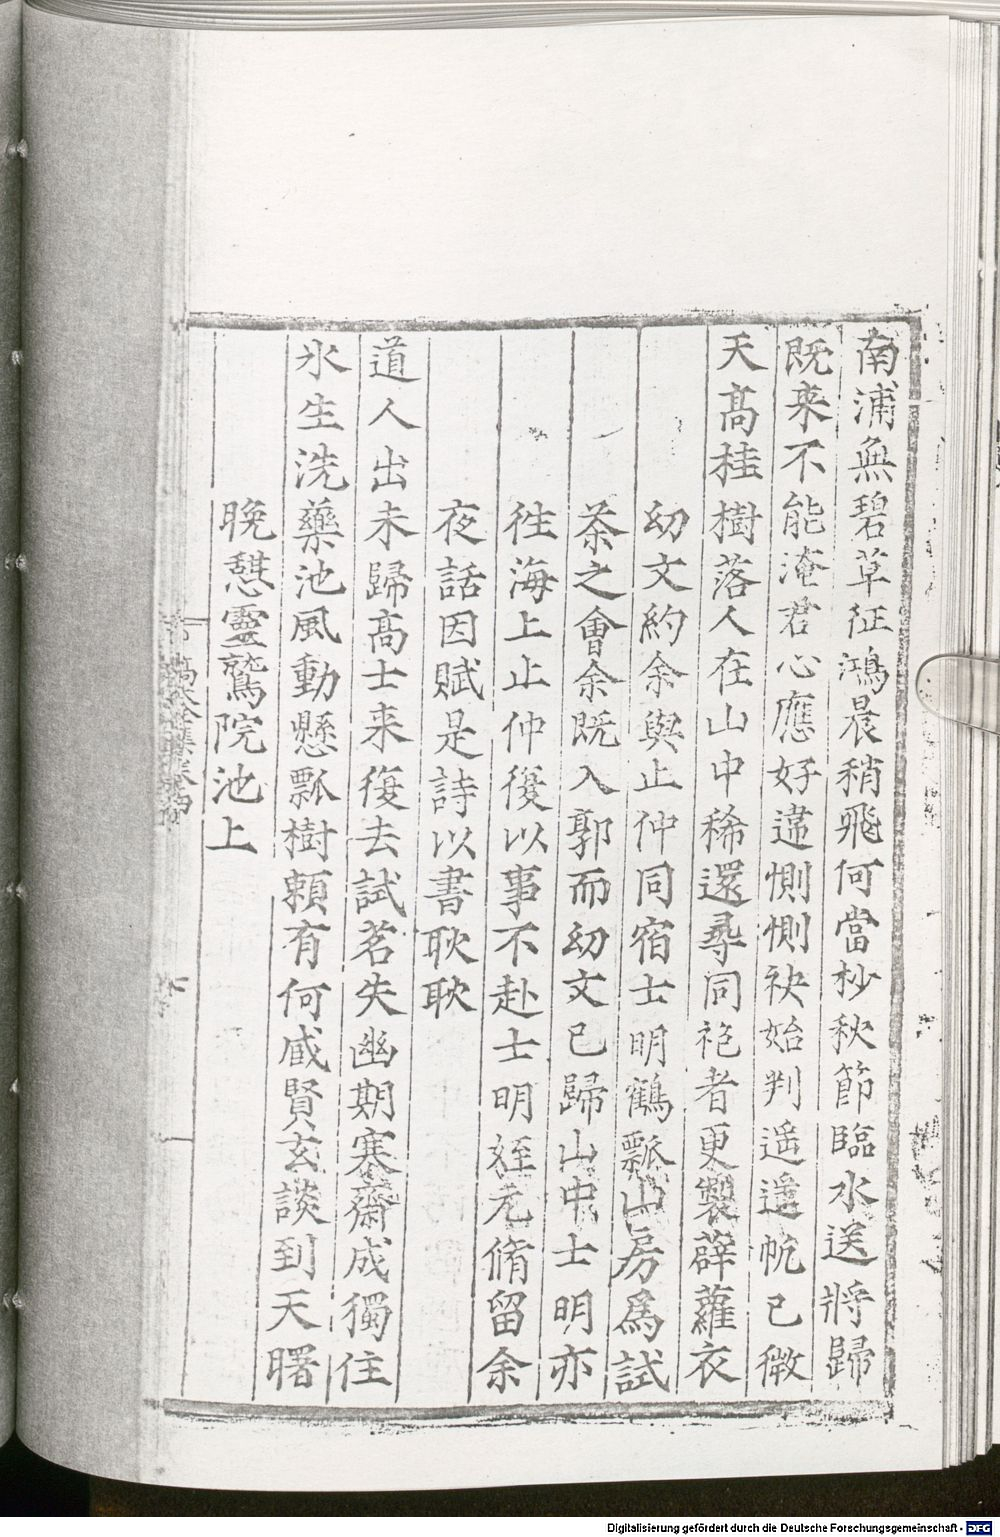 南浦無碧草征鴻晨稍飛何當杪秋節臨水送將歸
既来不能淹君心應好違惻惻袂始判遥遥帆已微
天髙桂樹落人在山中稀還尋同袍者更製薜蘿衣
幼文約余與止仲同宿士明鶴瓢山房爲試
茶之會余既入郭而幼文已歸山中士明亦
徃海上止仲復以事不赴士明姪元脩留余
夜話因賦是詩以書耿耿
道人出未歸髙士来復去試茗失幽期寒齋成獨住
氷生洗藥池風動懸瓢樹頼有何戚賢玄談到天曙
晚憇靈鷲院池上
Digitalisierung gefördert durch die Deutsche Forschungsgemeinschaft - DFG